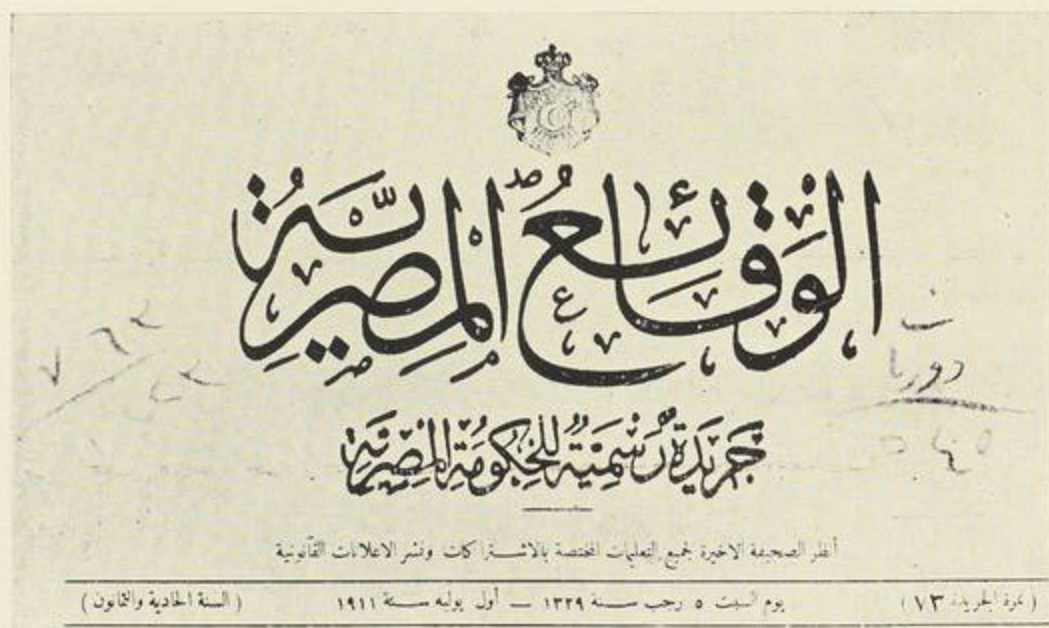 الوقائع المصرية
جريدة رسمية للحكومة المصرية
أنظر الصحيفة الاخيرة لجميع التعليمات المختصة بالاشتراكات ونشر الاعلانات القانونية
(نمرة الجريدة ٧٣) يوم السبت ٥ رجب سنة ١٣٢٩ — أول يوليه سنة ١٩١١ (السنة الحادية والثمانون)
دوريات